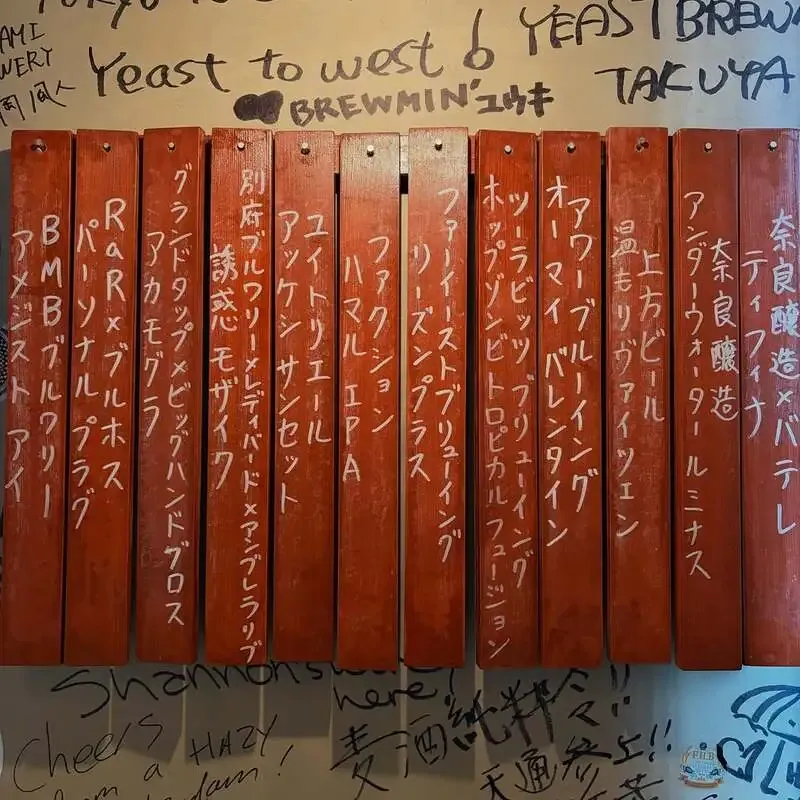 TOKYO
YEAST BREW
AMI
WERY
Yeast to west 6
TAKUYA
BREWMIN' ユウキ
奈良醸造×バテレ
ティフィナ
奈良醸造
アンダーウォータールミナス
上方ビール
温もりヴァイツェン
アワーブルーイング
オーマイ バレンタイン
ツーラビッツ ブリューイング
ホップゾンビ トロピカルフュージョン
ファーイーストブリューイング
リーズンプラス
ファクション
ハマル IPA
ユイトリエール
アッケシサンセット
別府ブルワリー×レディバード×アンブレラリブ
誘惑モザイク
グランドタップ×ビッグハンドブロス
アカモグラ
RaR×ブルホス
パーソナル プラグ
BMBブルワリー
アメジスト アイ
Shannon's
here!
Cheers
from a HAZY
麦酒純粋令!!
天通参上!!
F.H.B